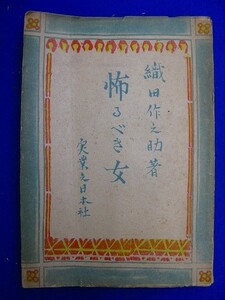 織田作之助著
怖るべき女
実業之日本社